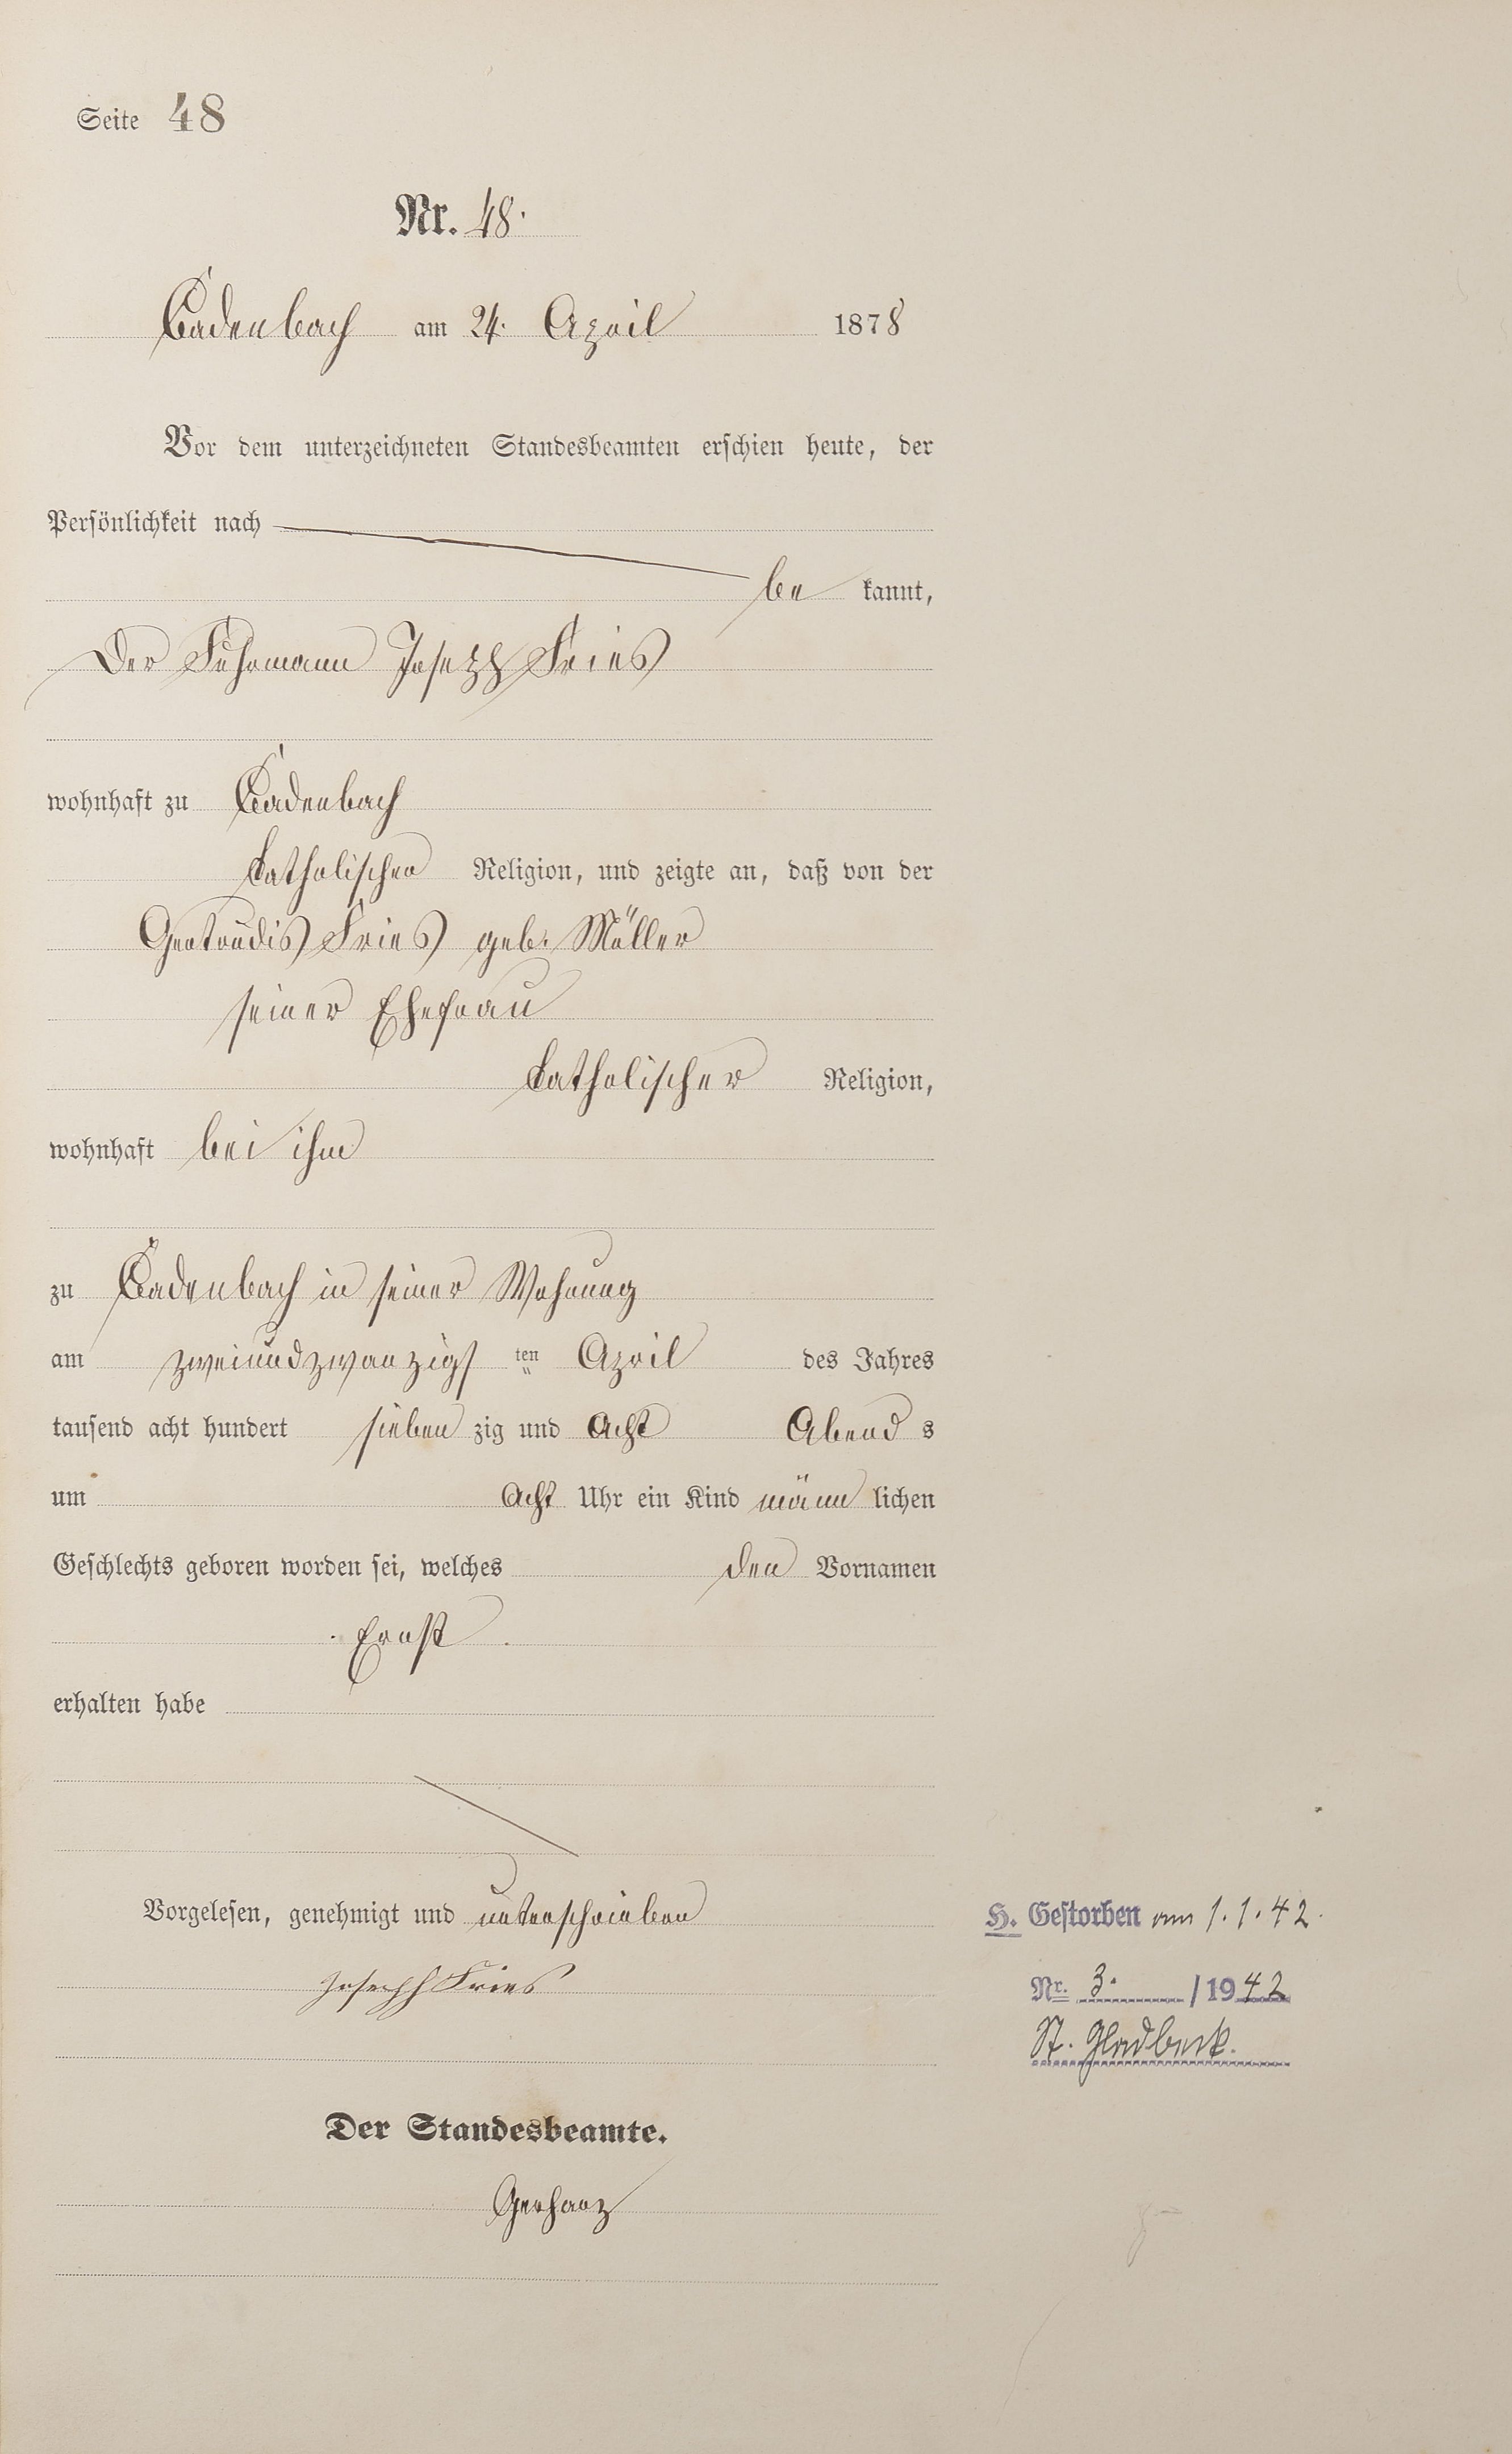 Seite 48
Nr. 48.
Cadenbach am 24. April 1878
Vor dem unterzeichneten Standesbeamten erschien heute, der
Persönlichkeit nach
be kannt,
Der Fuhrmann Joseph Fries
wohnhaft zu Cadenbach
katholischer Religion, und zeigte an, daß von der
Gertrudis Fries geb. Müller
seiner Ehefrau
katholischer Religion,
wohnhaft bei ihm
zu Cadenbach in seiner Wohnung
am zweiundzwanzigs ten April des Jahres
tausend acht hundert sieben zig und Acht Abend s
um Acht Uhr ein Kind männ lichen
Geschlechts geboren worden sei, welches den Vornamen
Ernst
erhalten habe
Vorgelesen, genehmigt und unterschrieben
Joseph Fries
Der Standesbeamte.
Gerharz
H. Gestorben am 1.1.42.
Nr. 3. /1942
St. Gladbeck.